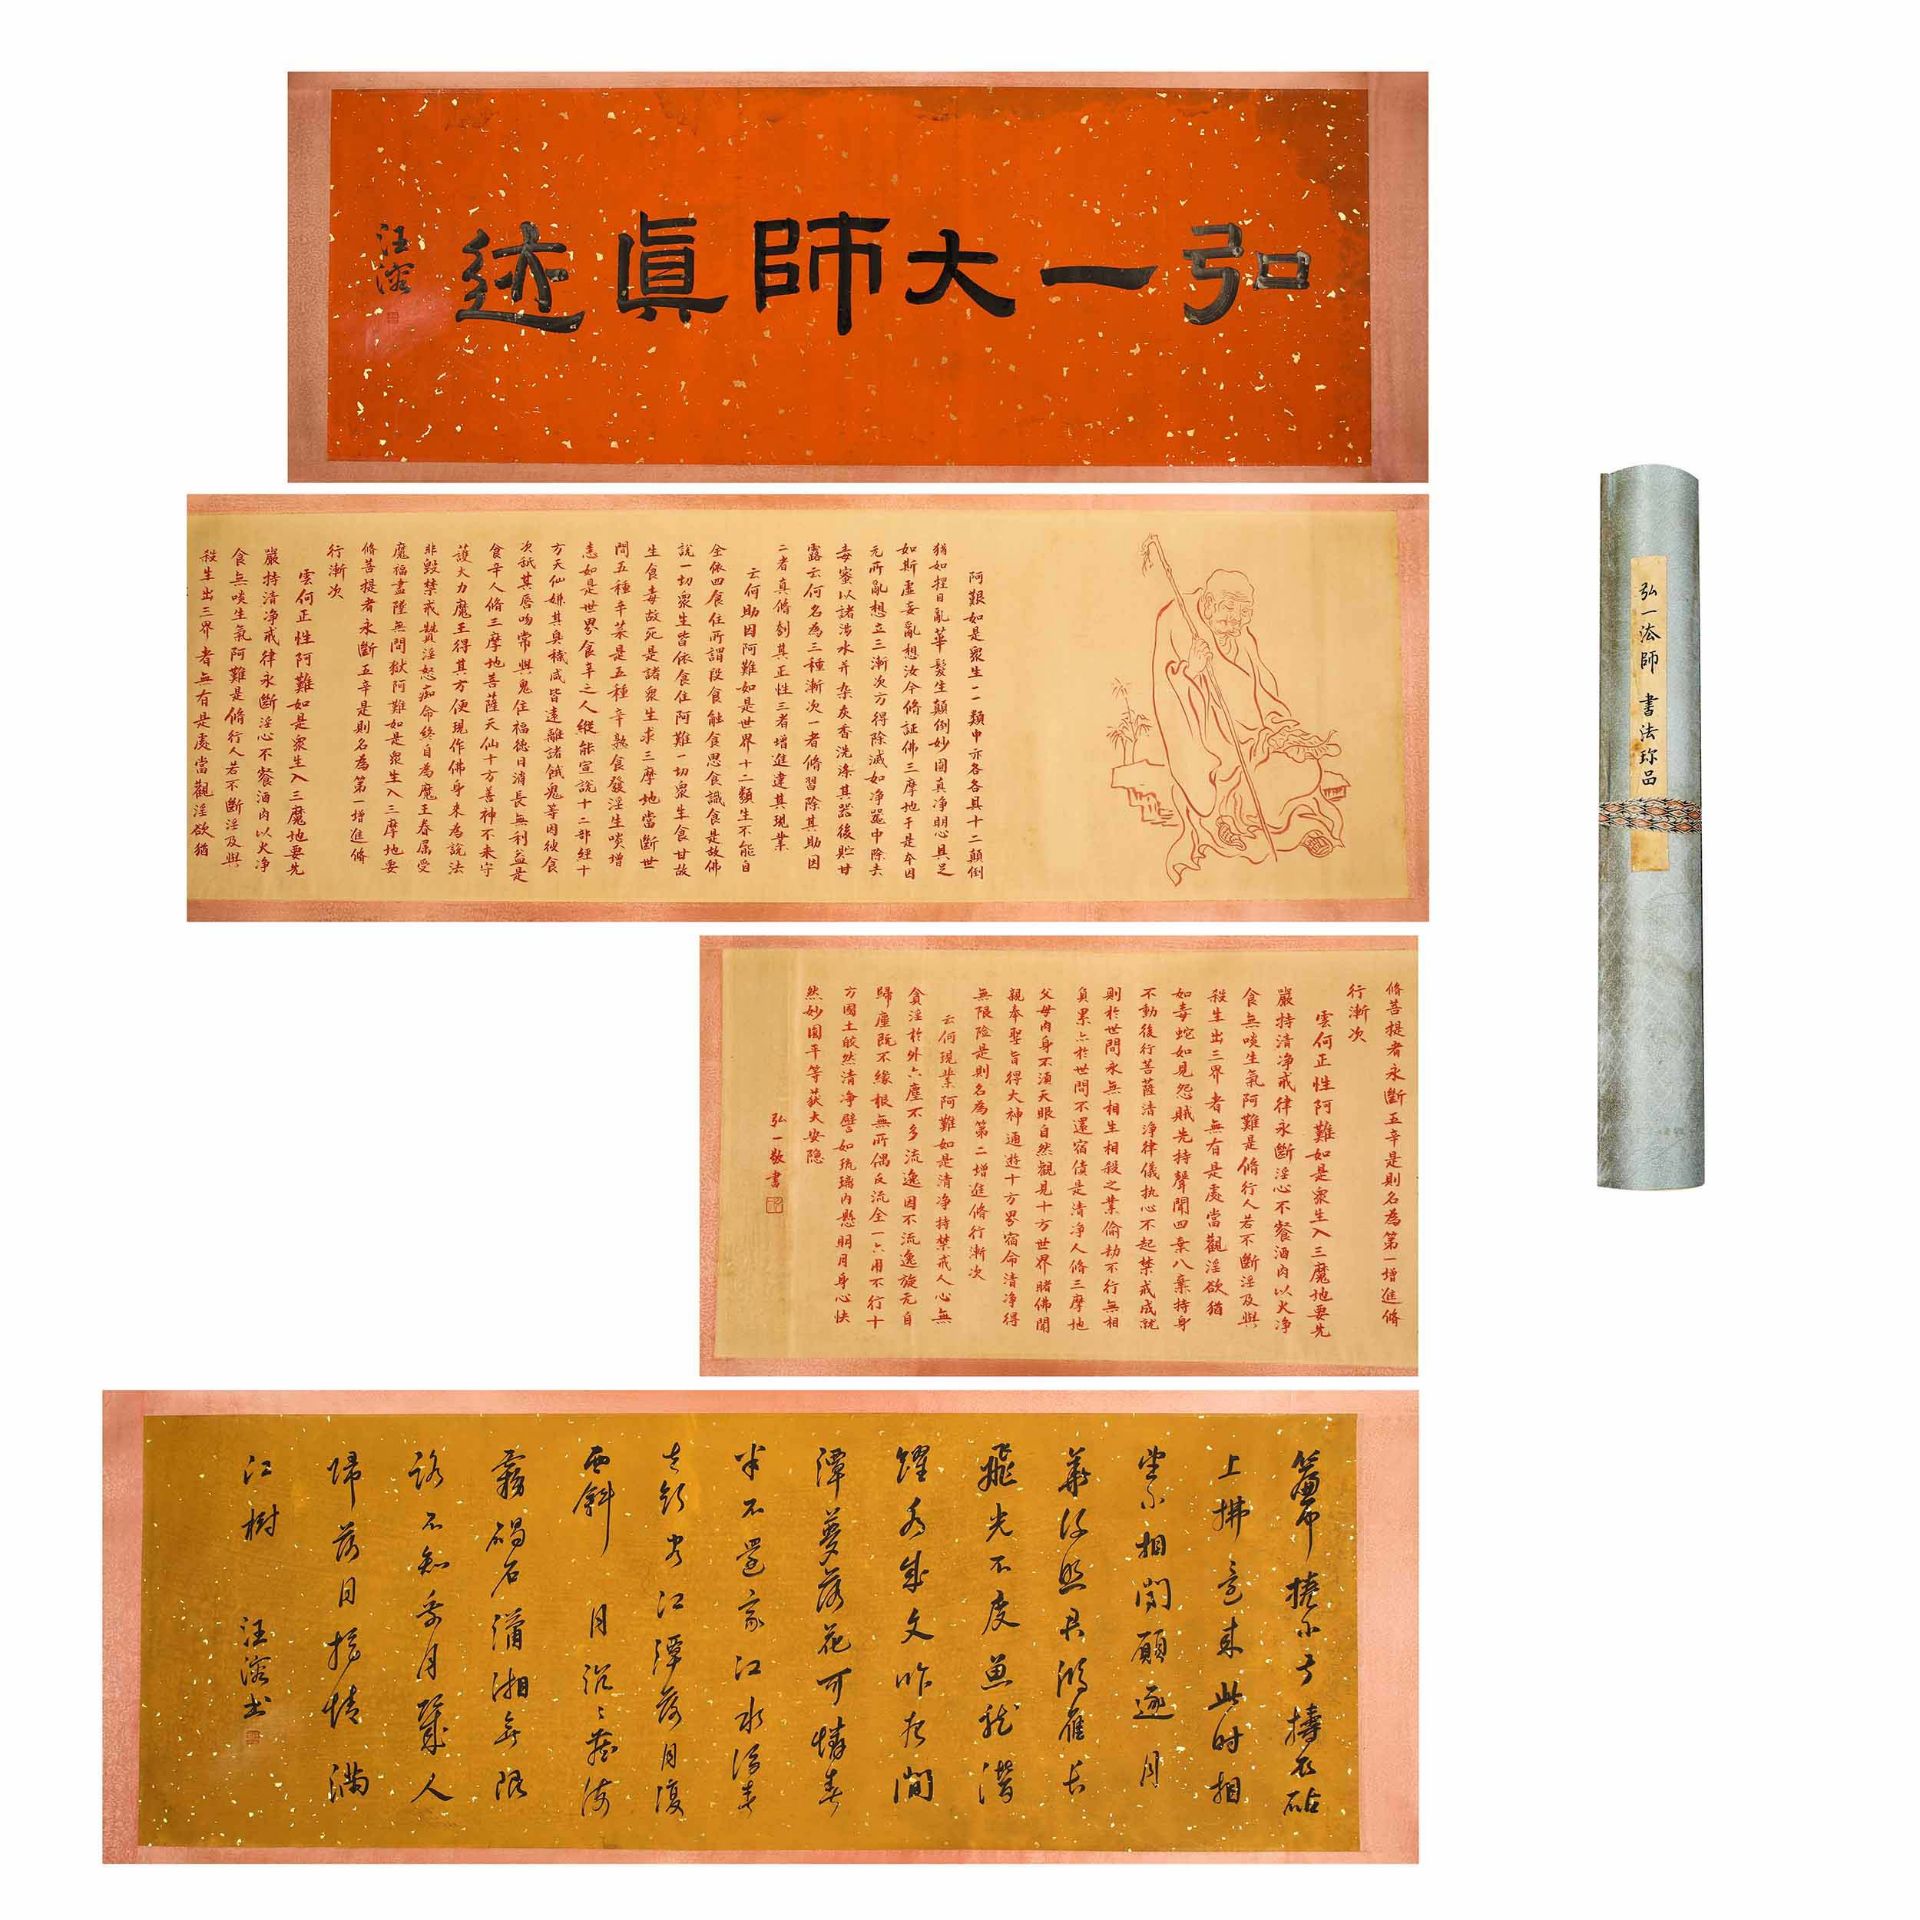 弘一大師眞迹
汪溶
阿艱如是衆生一一類中亦各各具十二顛倒
猶如捏目亂華髮生顛倒妙圓真淨明心具足
如斯虛妄亂想汝今脩証佛三摩地于是本因
元所亂想立三漸次方得除滅如净器中除去
毒蜜以諸湯水并杂灰香洗滌其器後貯甘
露云何名為三種漸次一者脩習除其助因
二者真脩刳其正性三者增進違其現業
云何助因阿難如是世界十二類生不能自
全依四食住所謂段食觸食思食識食是故佛
說一切衆生皆依食住阿難一切衆生食甘故
生食毒故死是諸衆生求三摩地當斷世
間五種辛菜是五種辛熟食發淫生啖增
恚如是世界食辛之人縱能宣說十二部經十
方天仙嫌其臭穢咸皆遠離諸餓鬼等因彼食
次舐其唇吻常與鬼住福德日消長無利益是
食辛人脩三摩地菩薩天仙十方善神不来守
護大力魔王得其方便現作佛身来為說法
非毀禁戒贊淫怒痴命終自為魔王眷屬受
魔福盡墮無間獄阿難如是衆生入三摩地要
脩菩提者永斷五辛是則名為第一增進脩
行漸次
雲何正性阿難如是衆生入三魔地要先
嚴持清净戒律永斷淫心不餐酒肉以火净
食無啖生氣阿難是脩行人若不斷淫及與
殺生出三界者無有是處當觀淫欲猶
脩菩提者永斷五辛是則名為第一增進脩
行漸次
雲何正性阿難如是衆生入三魔地要先
嚴持清净戒律永斷淫心不餐酒肉以火净
食無啖生氣阿難是脩行人若不斷淫及與
殺生出三界者無有是處當觀淫欲猶
如毒蛇如見怨賊先持聲聞四棄八棄持身
不動後行菩薩清净律儀执心不起禁戒成就
則於世間永無相生相殺之業偷劫不行無相
負累亦於世間不還宿債是清净人脩三摩地
父母肉身不須天眼自然觀見十方世界睹佛聞
親奉聖旨得大神通遊十方界宿命清净得
無限险是則名為第二增進脩行漸次
云何現業阿難如是清净持禁戒人心無
貪淫於外六塵不多流逸因不流逸旋元自
歸塵既不緣根無所偶反流全一六用不行十
方國土皎然清净譬如琉璃内懸明月身心快
然妙圓平等获大安隐
弘一敬書
簾中捲不去擣衣砧
上拂還来此時相
望不相聞願逐月
華流照君鴻雁長
飛光不度魚龍潛
躍水成文昨夜閒
潭夢落花可憐春
半不還家江水流春
去欲盡江潭落月復
西斜 月沉沉藏海
霧碣石瀟湘無限
路不知乘月幾人
歸落月搖情滿
江樹 汪溶書
弘一法師 書法珍品